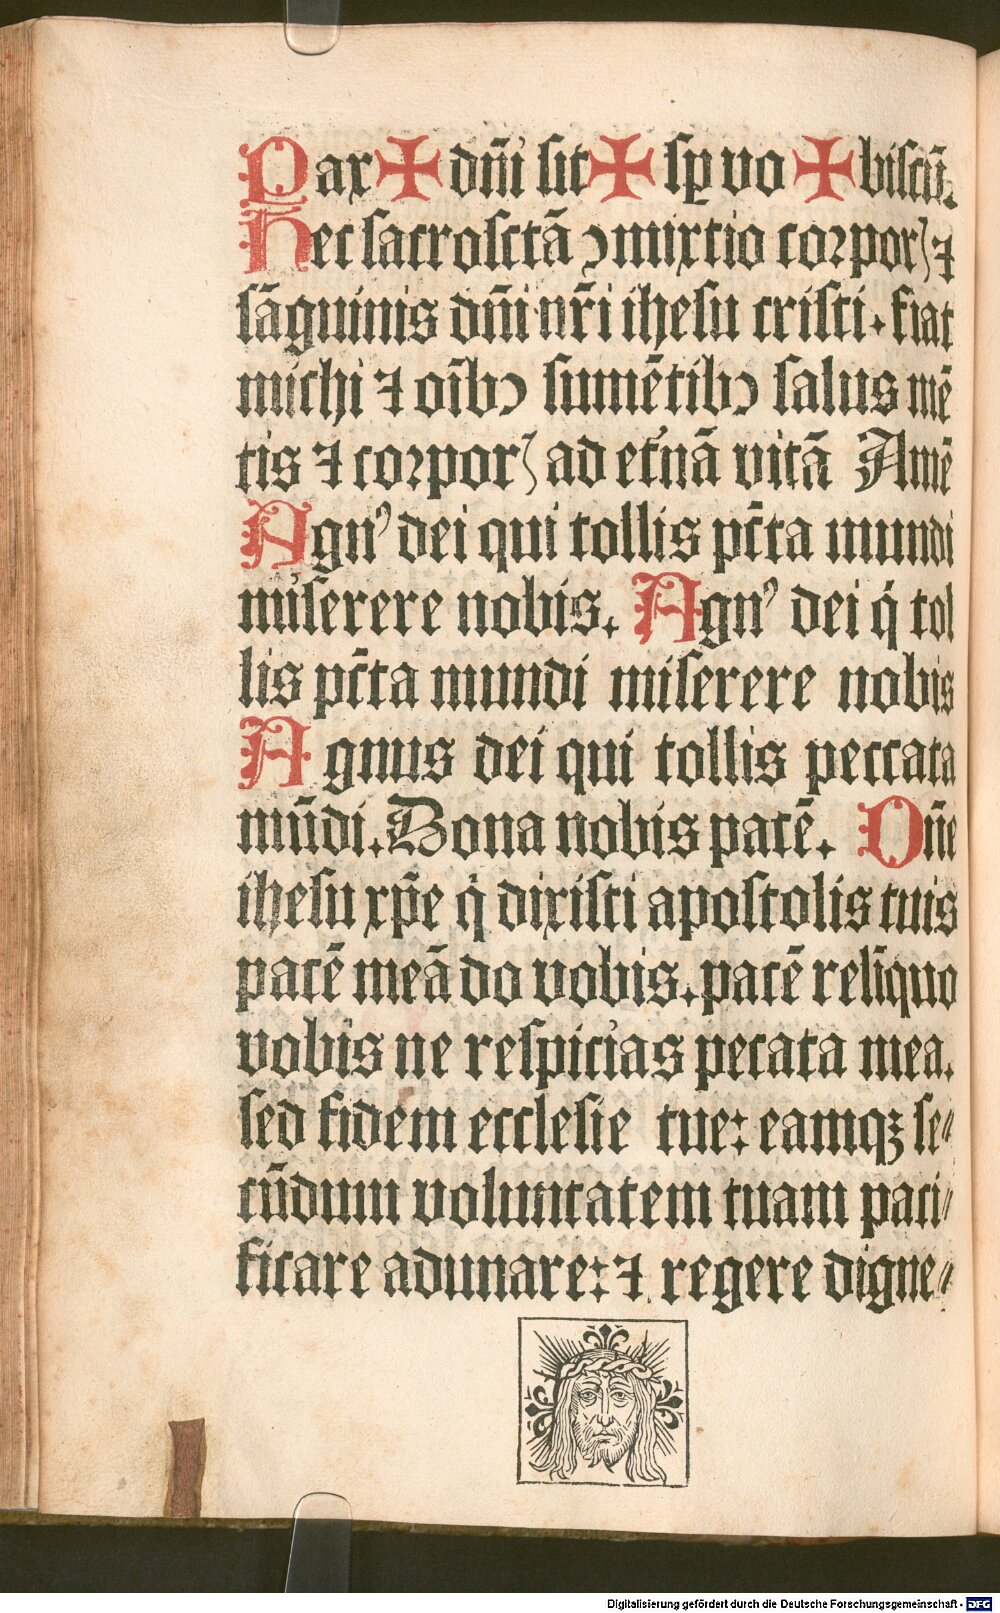 Pax ✠ dn̄i sit ✠ sꝑ vo ✠ biscū.
Hec sacrosctā ɔmixtio corporꝭ ⁊
sāguinis dn̄i nr̄i ihesu cristi. fiat
michi ⁊ oībꝰ sumētibꝰ salus mē
tis ⁊ corporꝭ ad et'nā vitā Amē
Agnꝰ dei qui tollis pc̄ta mundi
miserere nobis. Agnꝰ dei q̇ tol
lis pc̄ta mundi miserere nobis
Agnus dei qui tollis peccata
mūdi. Dona nobis pacē. Dn̄e
ihesu xp̄e q̇ dixisti apostolis tuis
pacē meā do vobis. pacē relīquo
vobis ne respicias pecata mea.
sed fidem ecclesie tue: eamqꝫ se⸗
cūdum voluntatem tuam paci⸗
ficare adunare: ⁊ regere digne⸗
Digitalisierung gefördert durch die Deutsche Forschungsgemeinschaft - DFG